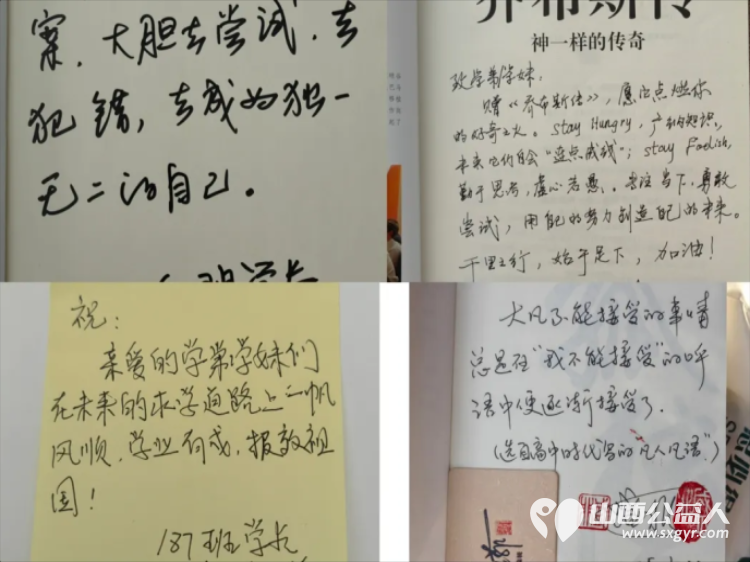 案，大胆去尝试，去
犯错，去成为独一
无二的自己。
乔布斯传
神一样的传奇
致学弟学妹：
赠《乔布斯传》，愿它点燃你
的好奇之火。stay Hungry，广纳知识，
未来它们自会“连点成线”；stay Foolish，
勤于思考，虚心若愚。专注当下，勇敢
尝试，用自己的努力创造自己的未来。
千里之行，始于足下，加油！
祝：
亲爱的学弟学妹们
在未来的求学道路上一帆
风顺，学业有成，报效祖
国！
187班学长
大凡不能接受的事情
总是在“我不能接受”的呼
语中便逐渐接受了。
（选自高中时代写的“凡人凡语”）
山西公益人
www.sxgyr.com